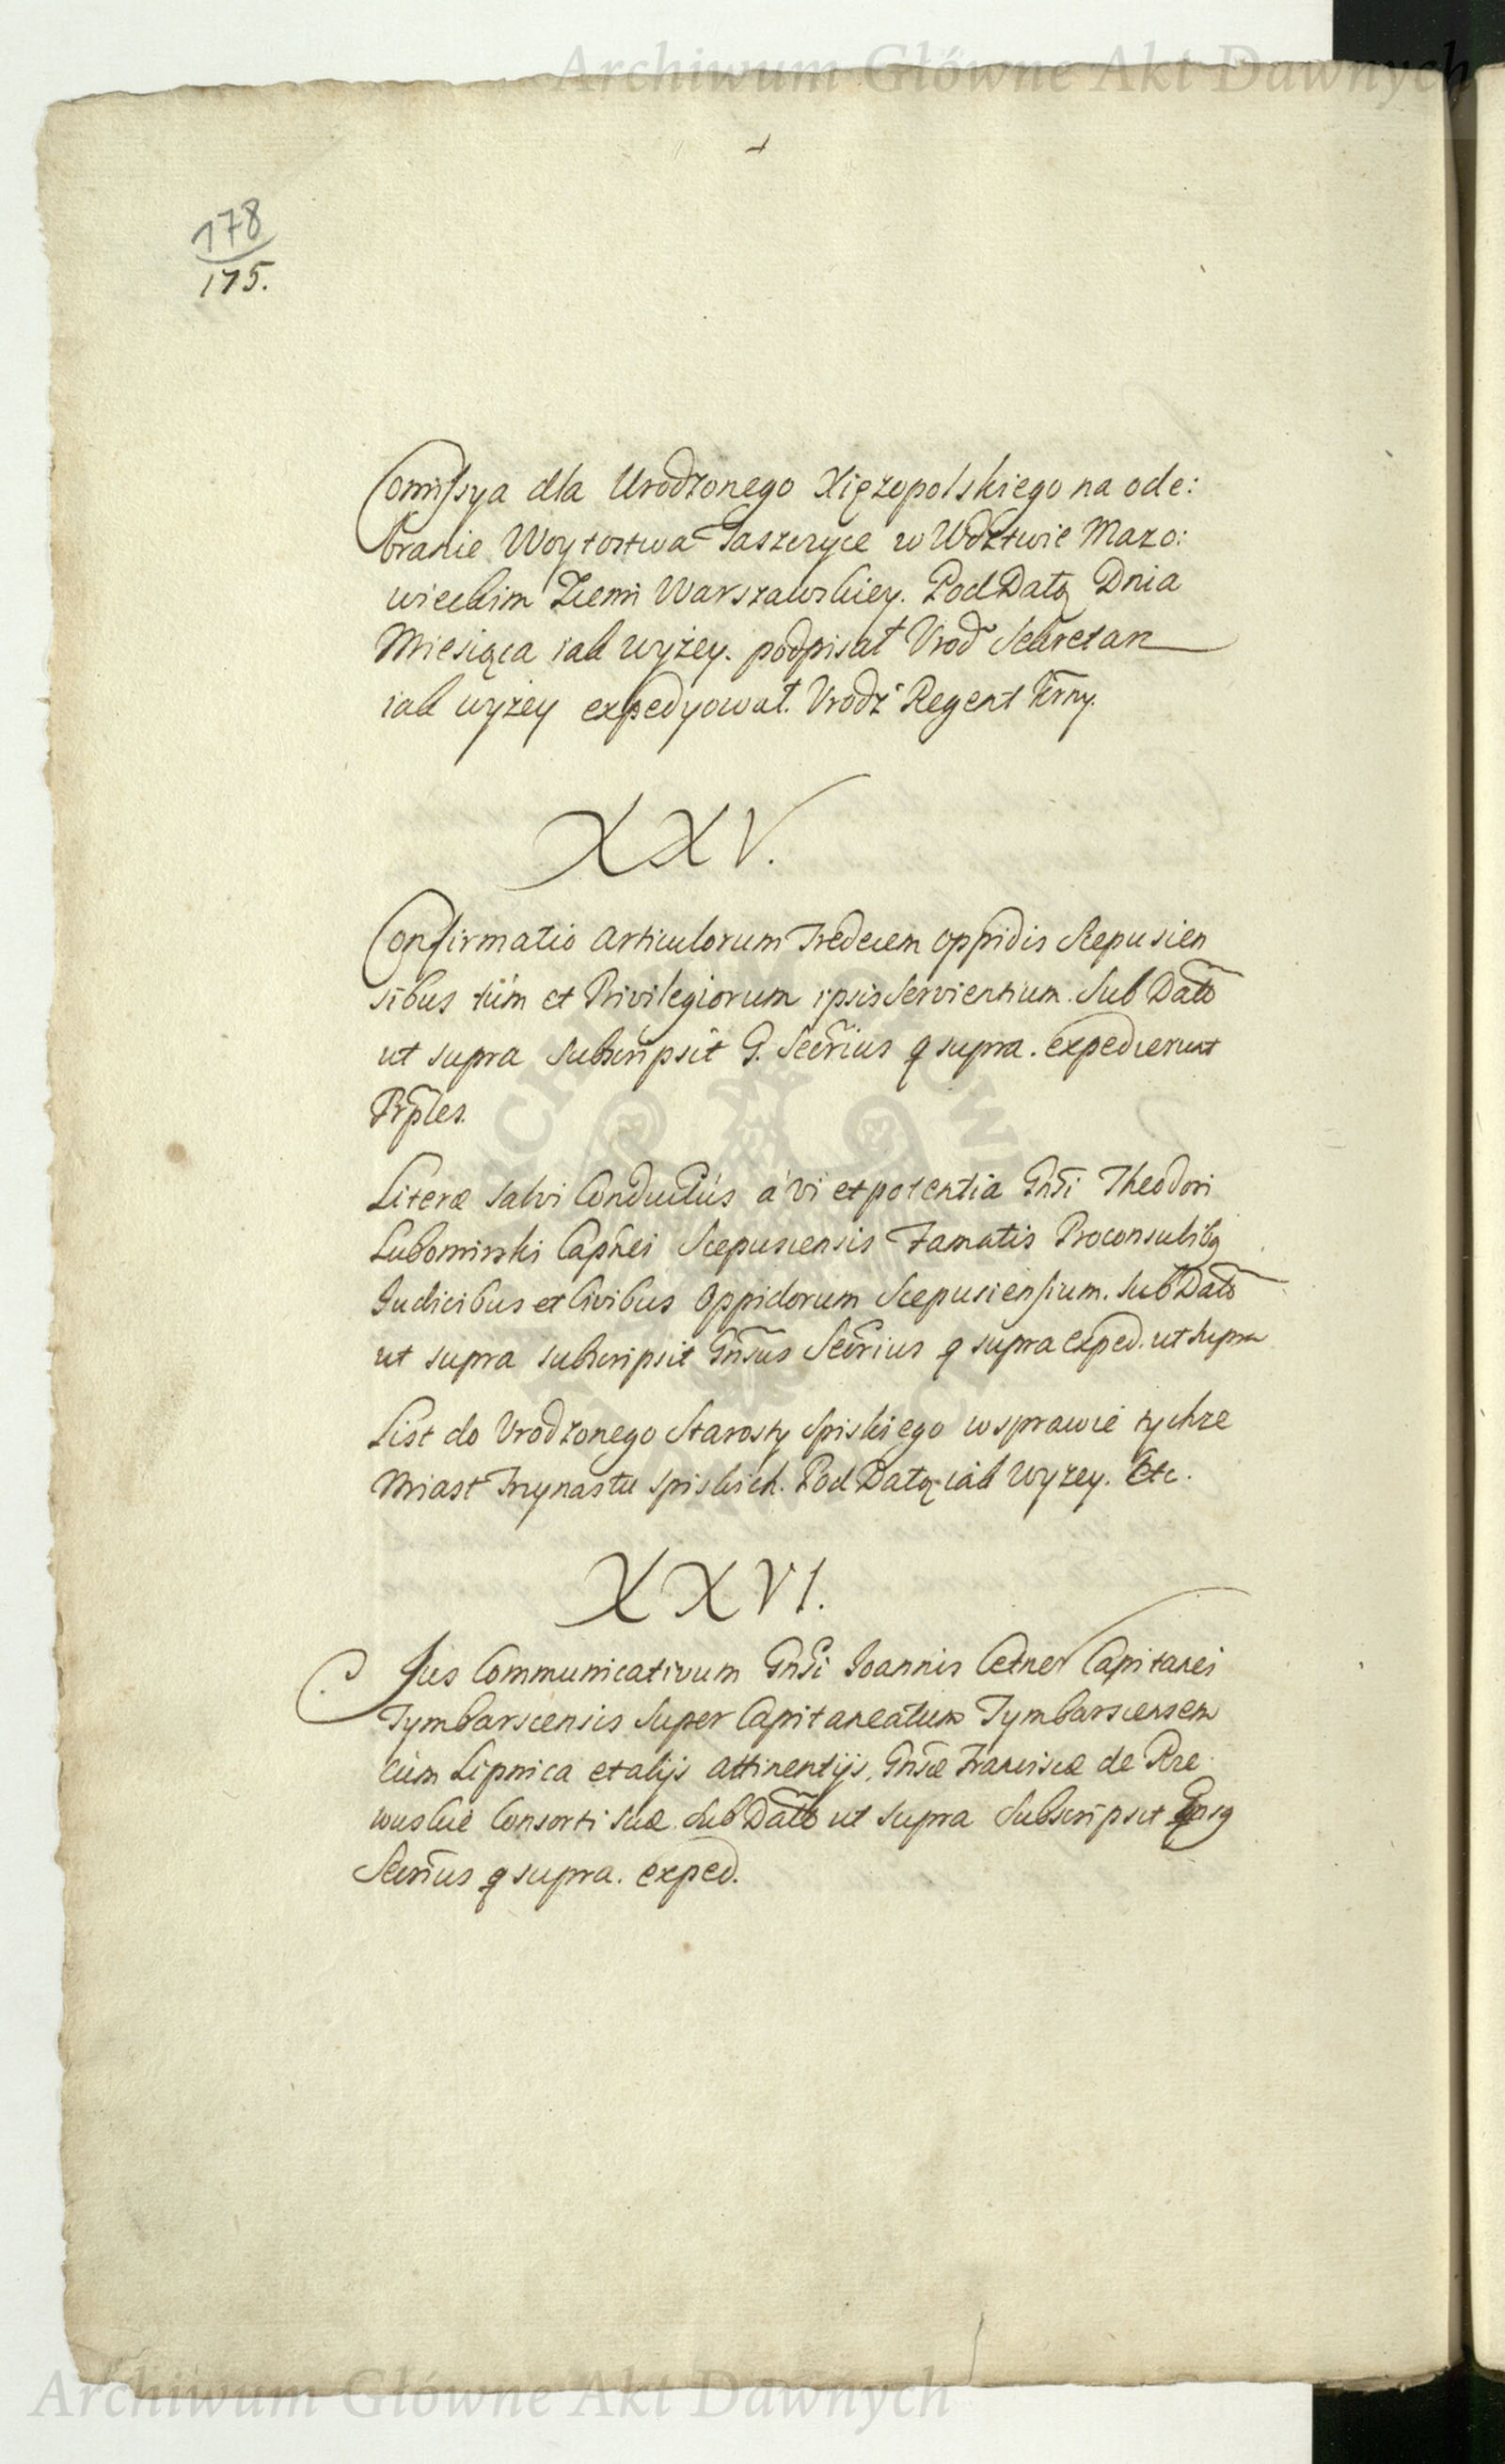 Archiwum Główne Akt Dawnych
178
175.
Comissya dla Urodzonego Xiężopolskiego na ode:
branie Woytostwa Jaszczyce w Wdztwie Mazo:
wieckim Ziemi Warszawskiey. Pod Datą Dnia
Miesiąca iak wyżey. podpisał Urod Sekretarz
iak wyżey expedyował. Urodz Regent
XXV.
Confirmatio Articulorum Tredecem Oppidis Scepusien
sibus tum et Privilegiorum ipsis Servientium. Sub Datto
ut supra Subscripsit G. Secrius q supra. expedierunt
Literæ salvi Conductûs a vi et potentia Gnsi Theodori
Lubomirski Capnei Scepusiensis Famatis Proconsulibq
Judicibus et Civibus Oppidorum Scepusiensium. Sub Datto
ut supra subscripsit Gnsus Secrius q supra exped. ut supra
List do Urodzonego Starosty Spiskiego w sprawie tychże
Miast Trzynastu Spiskich. Pod Datą iak wyzey. Etc.
XXVI.
Jus Communicativum Gnsi Joannis Cetner Capitanei
Tymbarscensis Super Capitaneatum Tymbarscensem
cum Lipnica et alijs attinentijs. Gnsæ Franciscæ de Rze
wuskie Consorti suæ. Sub Datto ut supra Subscripsit
Secrius q supra. exped.
Archiwum Główne Akt Dawnych